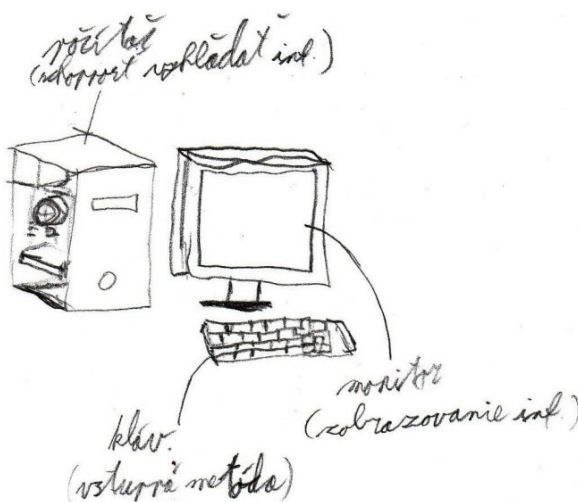 počítač
(schopnosť vyhľadať inf.)
monitor
(zobrazovanie inf.)
kláv.
(vstupná metóda)